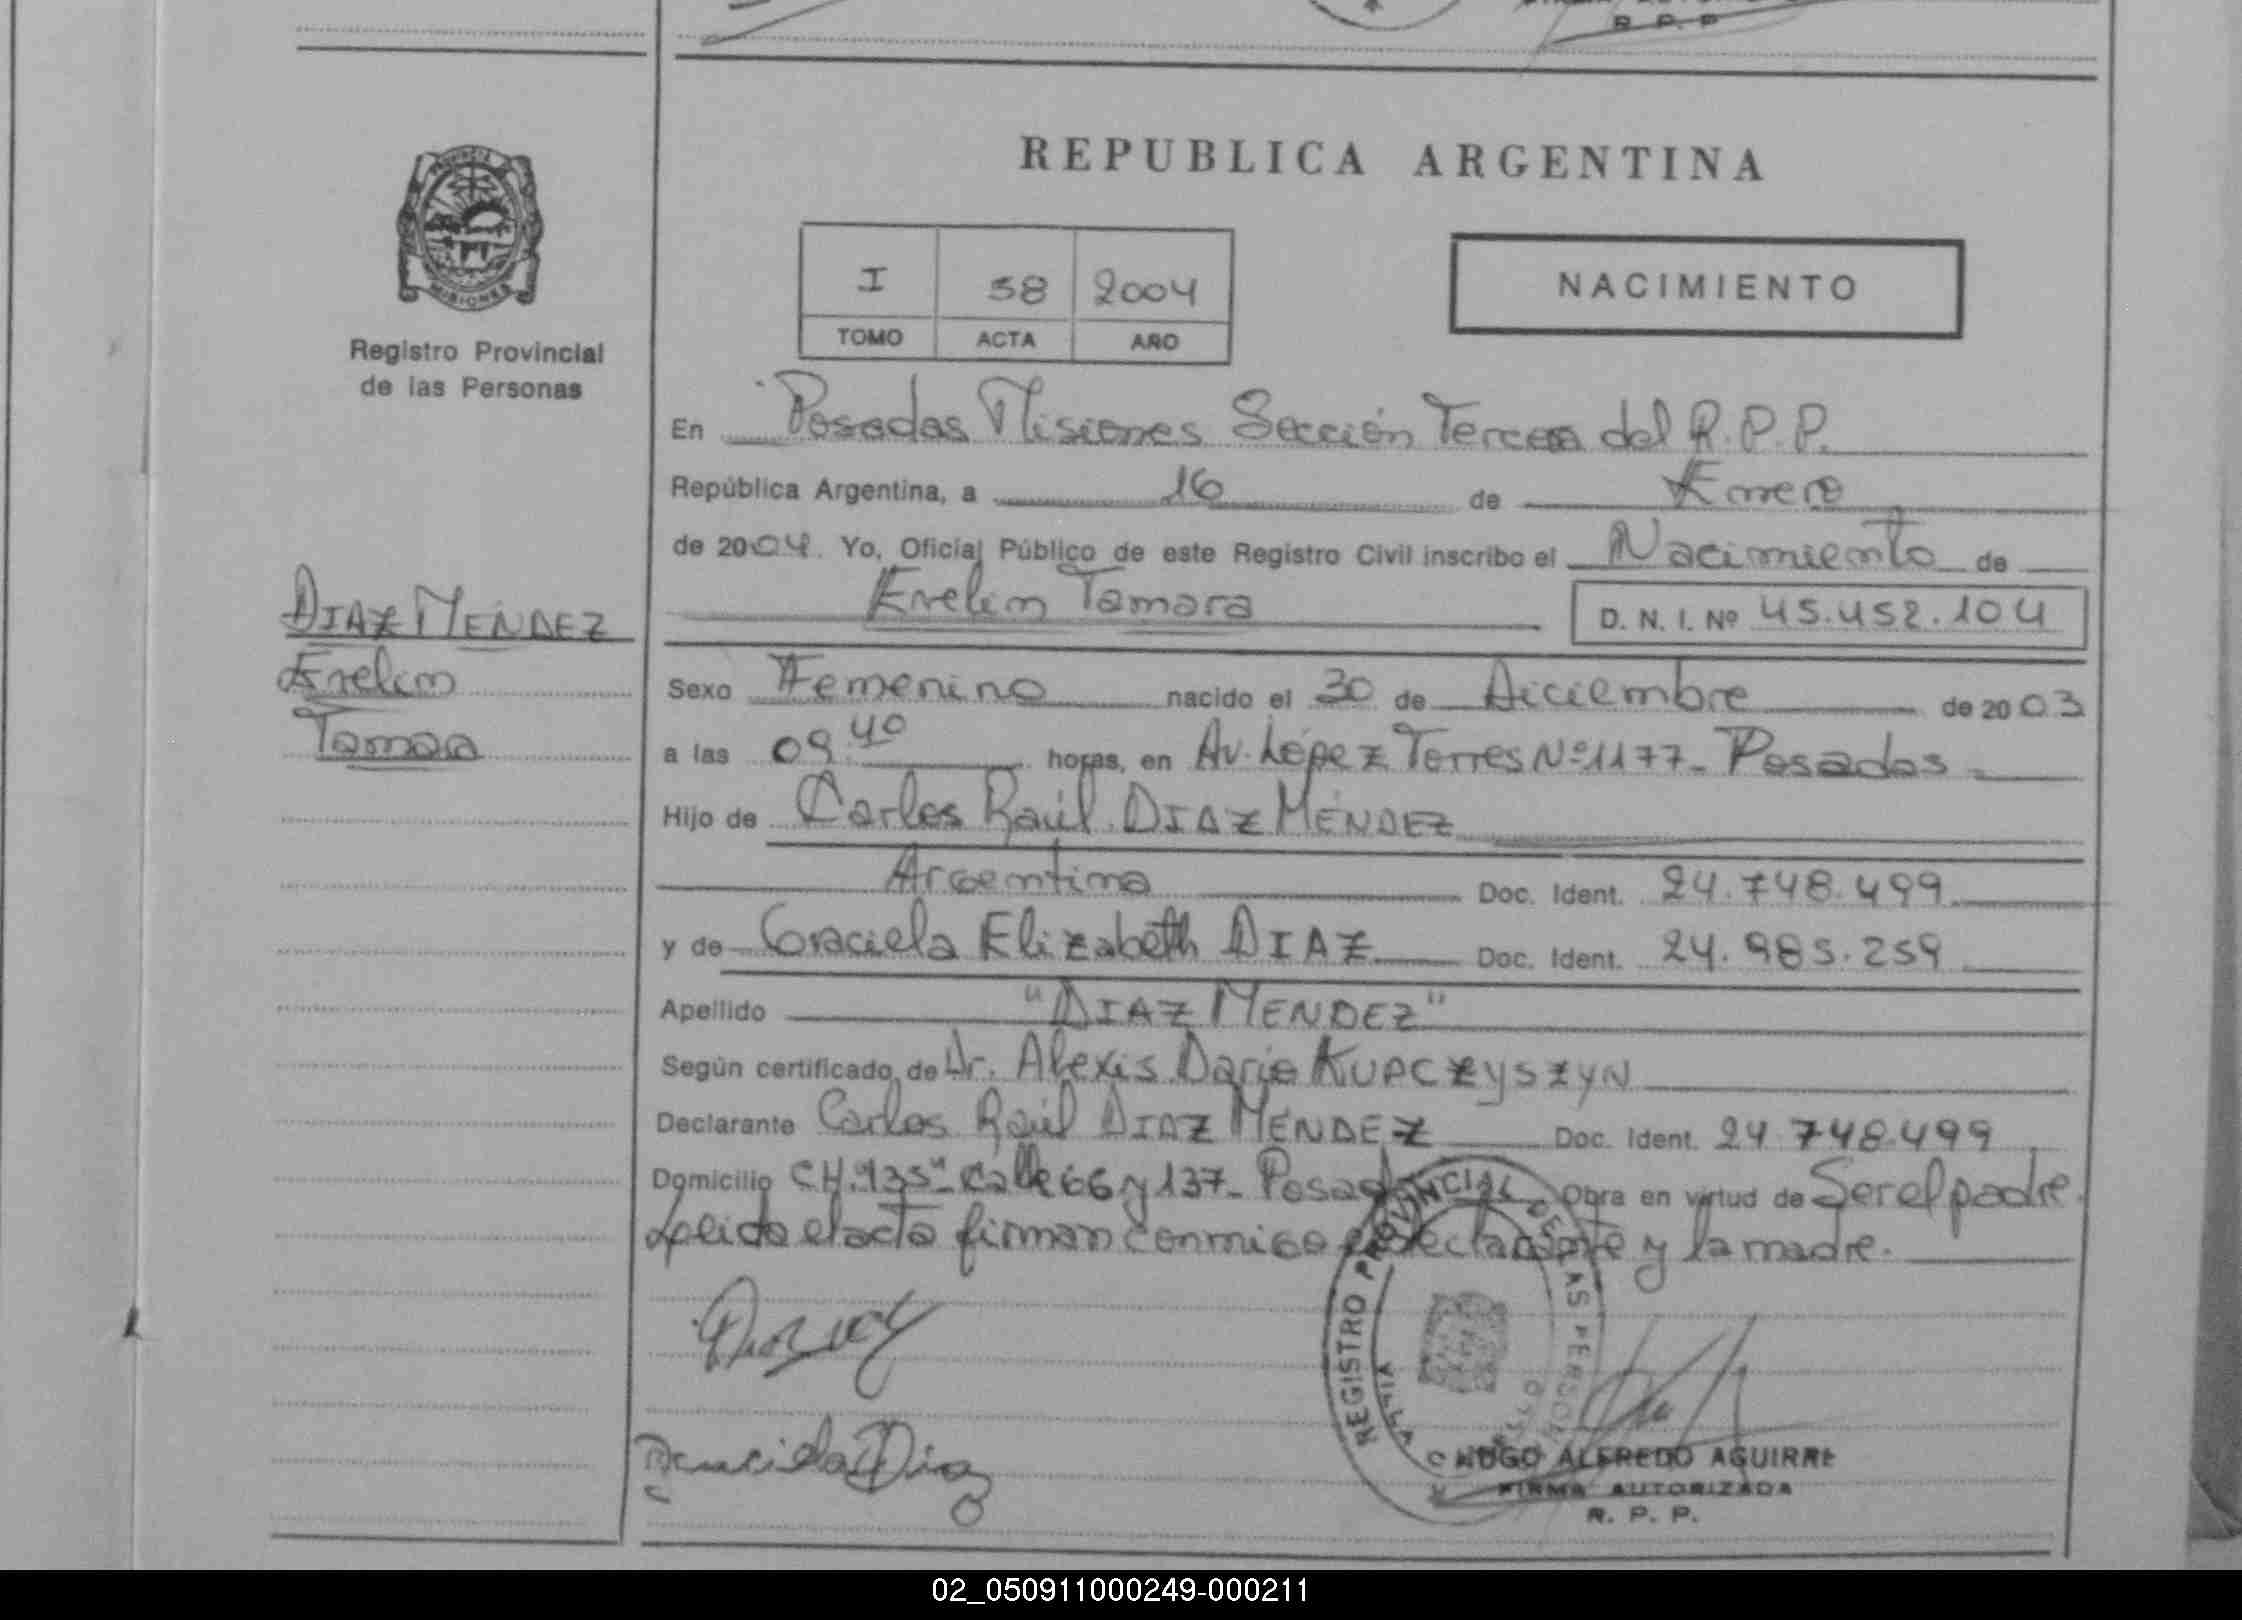 R. P. P.
REPUBLICA ARGENTINA
PROVINCIA
MISIONES
Registro Provincial
de las Personas
I 58 2004
TOMO ACTA AÑO
NACIMIENTO
En Posadas Misiones Sección Tercera del R.P.P.
República Argentina, a 16 de Enero
de 2004. Yo, Oficial Público de este Registro Civil inscribo el Nacimiento de
Evelin Tamara D. N. I. Nº 45.452.104
DIAZ MÉNDEZ
Evelin
Tamara
Sexo Femenino nacido el 30 de Diciembre de 2003
a las 09.40 horas, en Av. López Torres Nº 1177- Posadas
Hijo de Carlos Raúl DIAZ MÉNDEZ
Argentina Doc. Ident. 24.748.499
y de Graciela Elizabeth DIAZ Doc. Ident. 24.985.259
Apellido "DIAZ MENDEZ"
Según certificado de Dr. Alexis Dario KUPCZYSZYN
Declarante Carlos Raúl DIAZ MÉNDEZ Doc. Ident. 24.748.499
Domicilio CH. 135- Calle 66 y 137- Posadas Obra en virtud de Ser el padre.
Leida el acta firman conmigo el declarante y la madre.
REGISTRO PROVINCIAL DE LAS PERSONAS
Graciela Diaz
HUGO ALFREDO AGUIRRE
FIRMA AUTORIZADA
R. P. P.
02_050911000249-000211